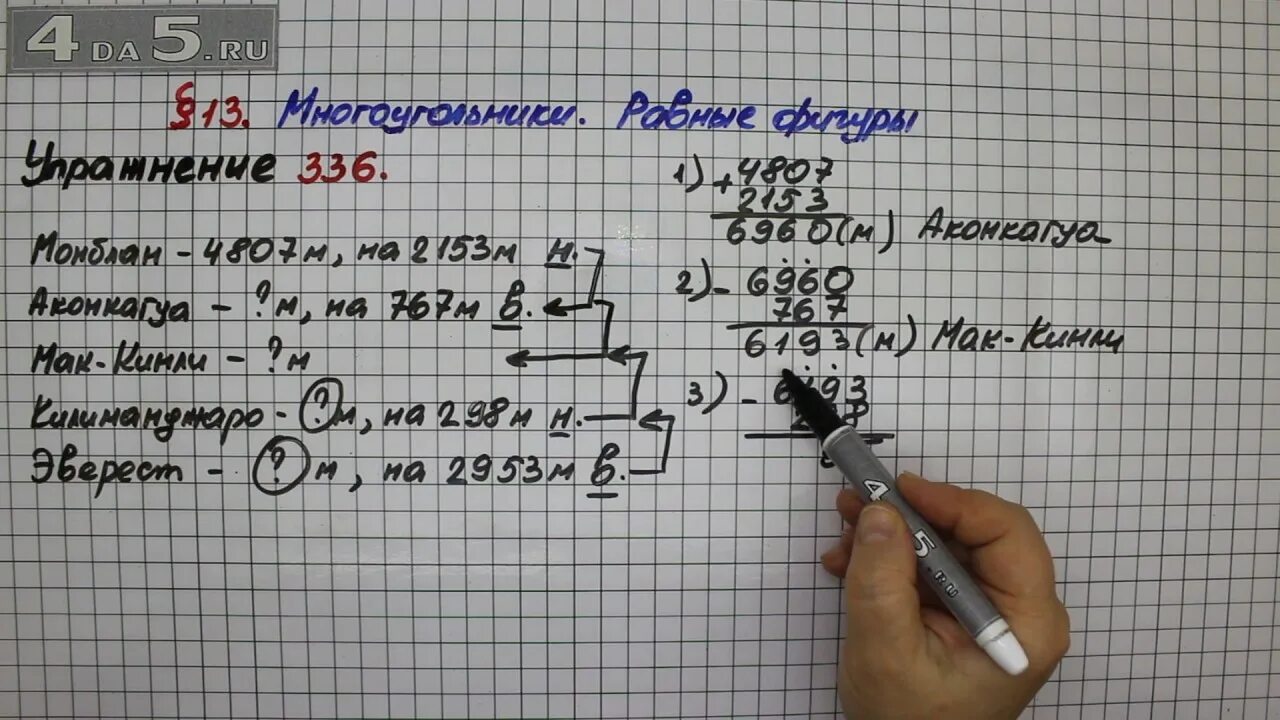 4DA5.RU
§13. Многоугольники. Равные фигуры
Упражнение 336.
Монблан - 4807м, на 2153м н.
Аконкагуа - ?м, на 767м в.
Мак-Кинли - ?м
Килиманджаро - ?м, на 298м н.
Эверест - ?м, на 2953м в.
1) + 4807
2153
6960(м) Аконкагуа
2) - 6960
767
6193(м) Мак-Кинли
3) - 6193
4
5.RU